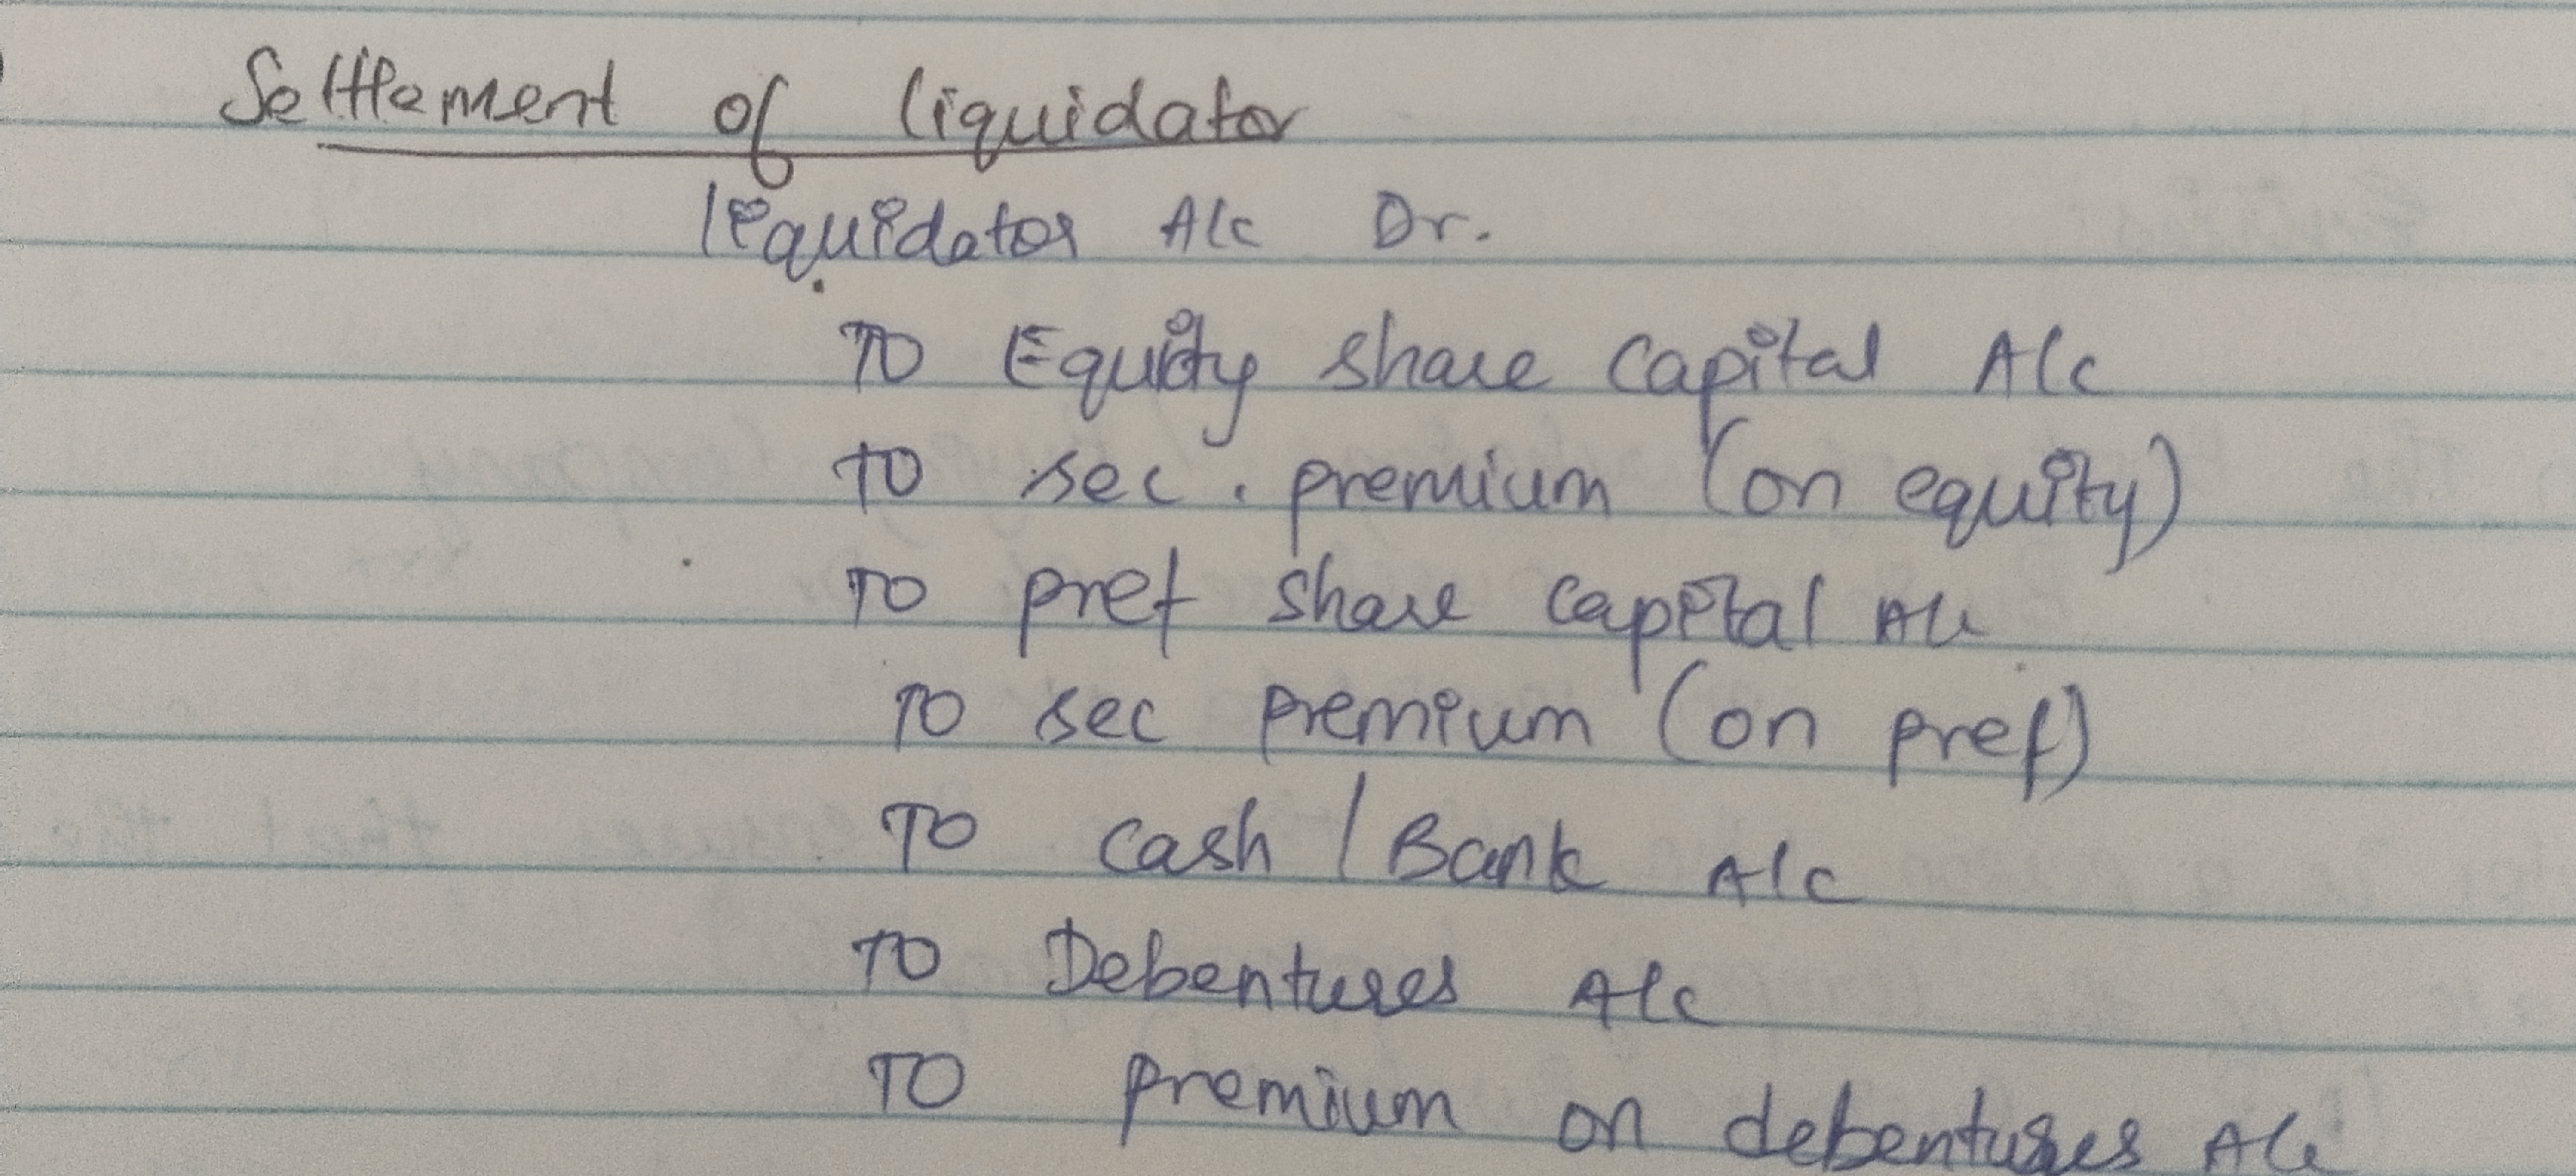 Settlement of liquidator
liquidator A/c Dr.
TO Equity share capital A/c
TO sec. premium (on equity)
TO pref share capital A/c
TO sec premium (on pref)
TO cash / Bank A/c
TO Debentures A/c
TO premium on debentures A/c